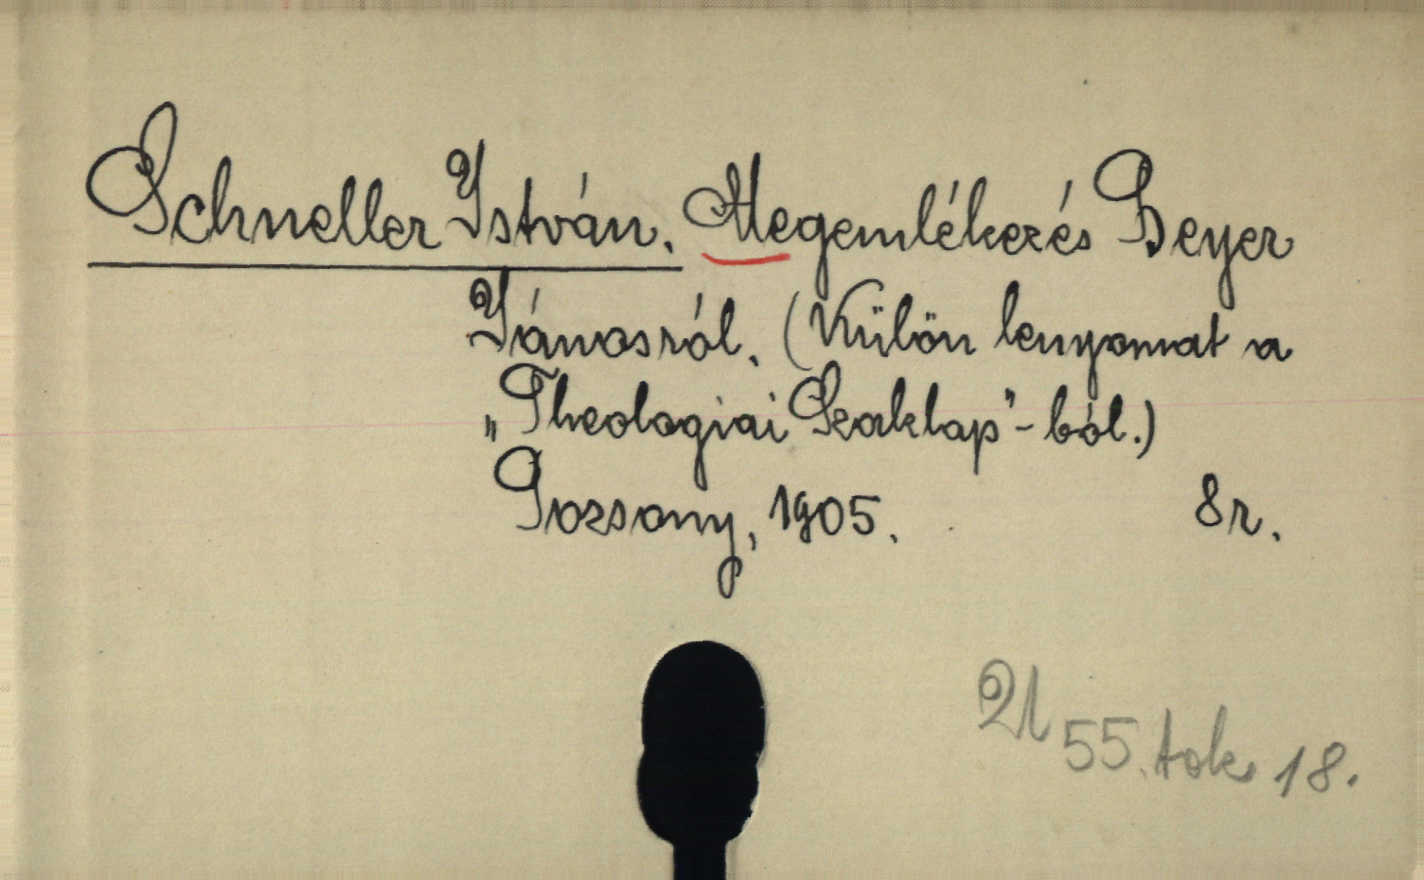 Schneller István. Megemlékezés Beyer
Jánosról. (Külön lenyomat a
„Theologiai Szaklap"-ból.)
Pozsony, 1905. 8r.
55. tok 18.